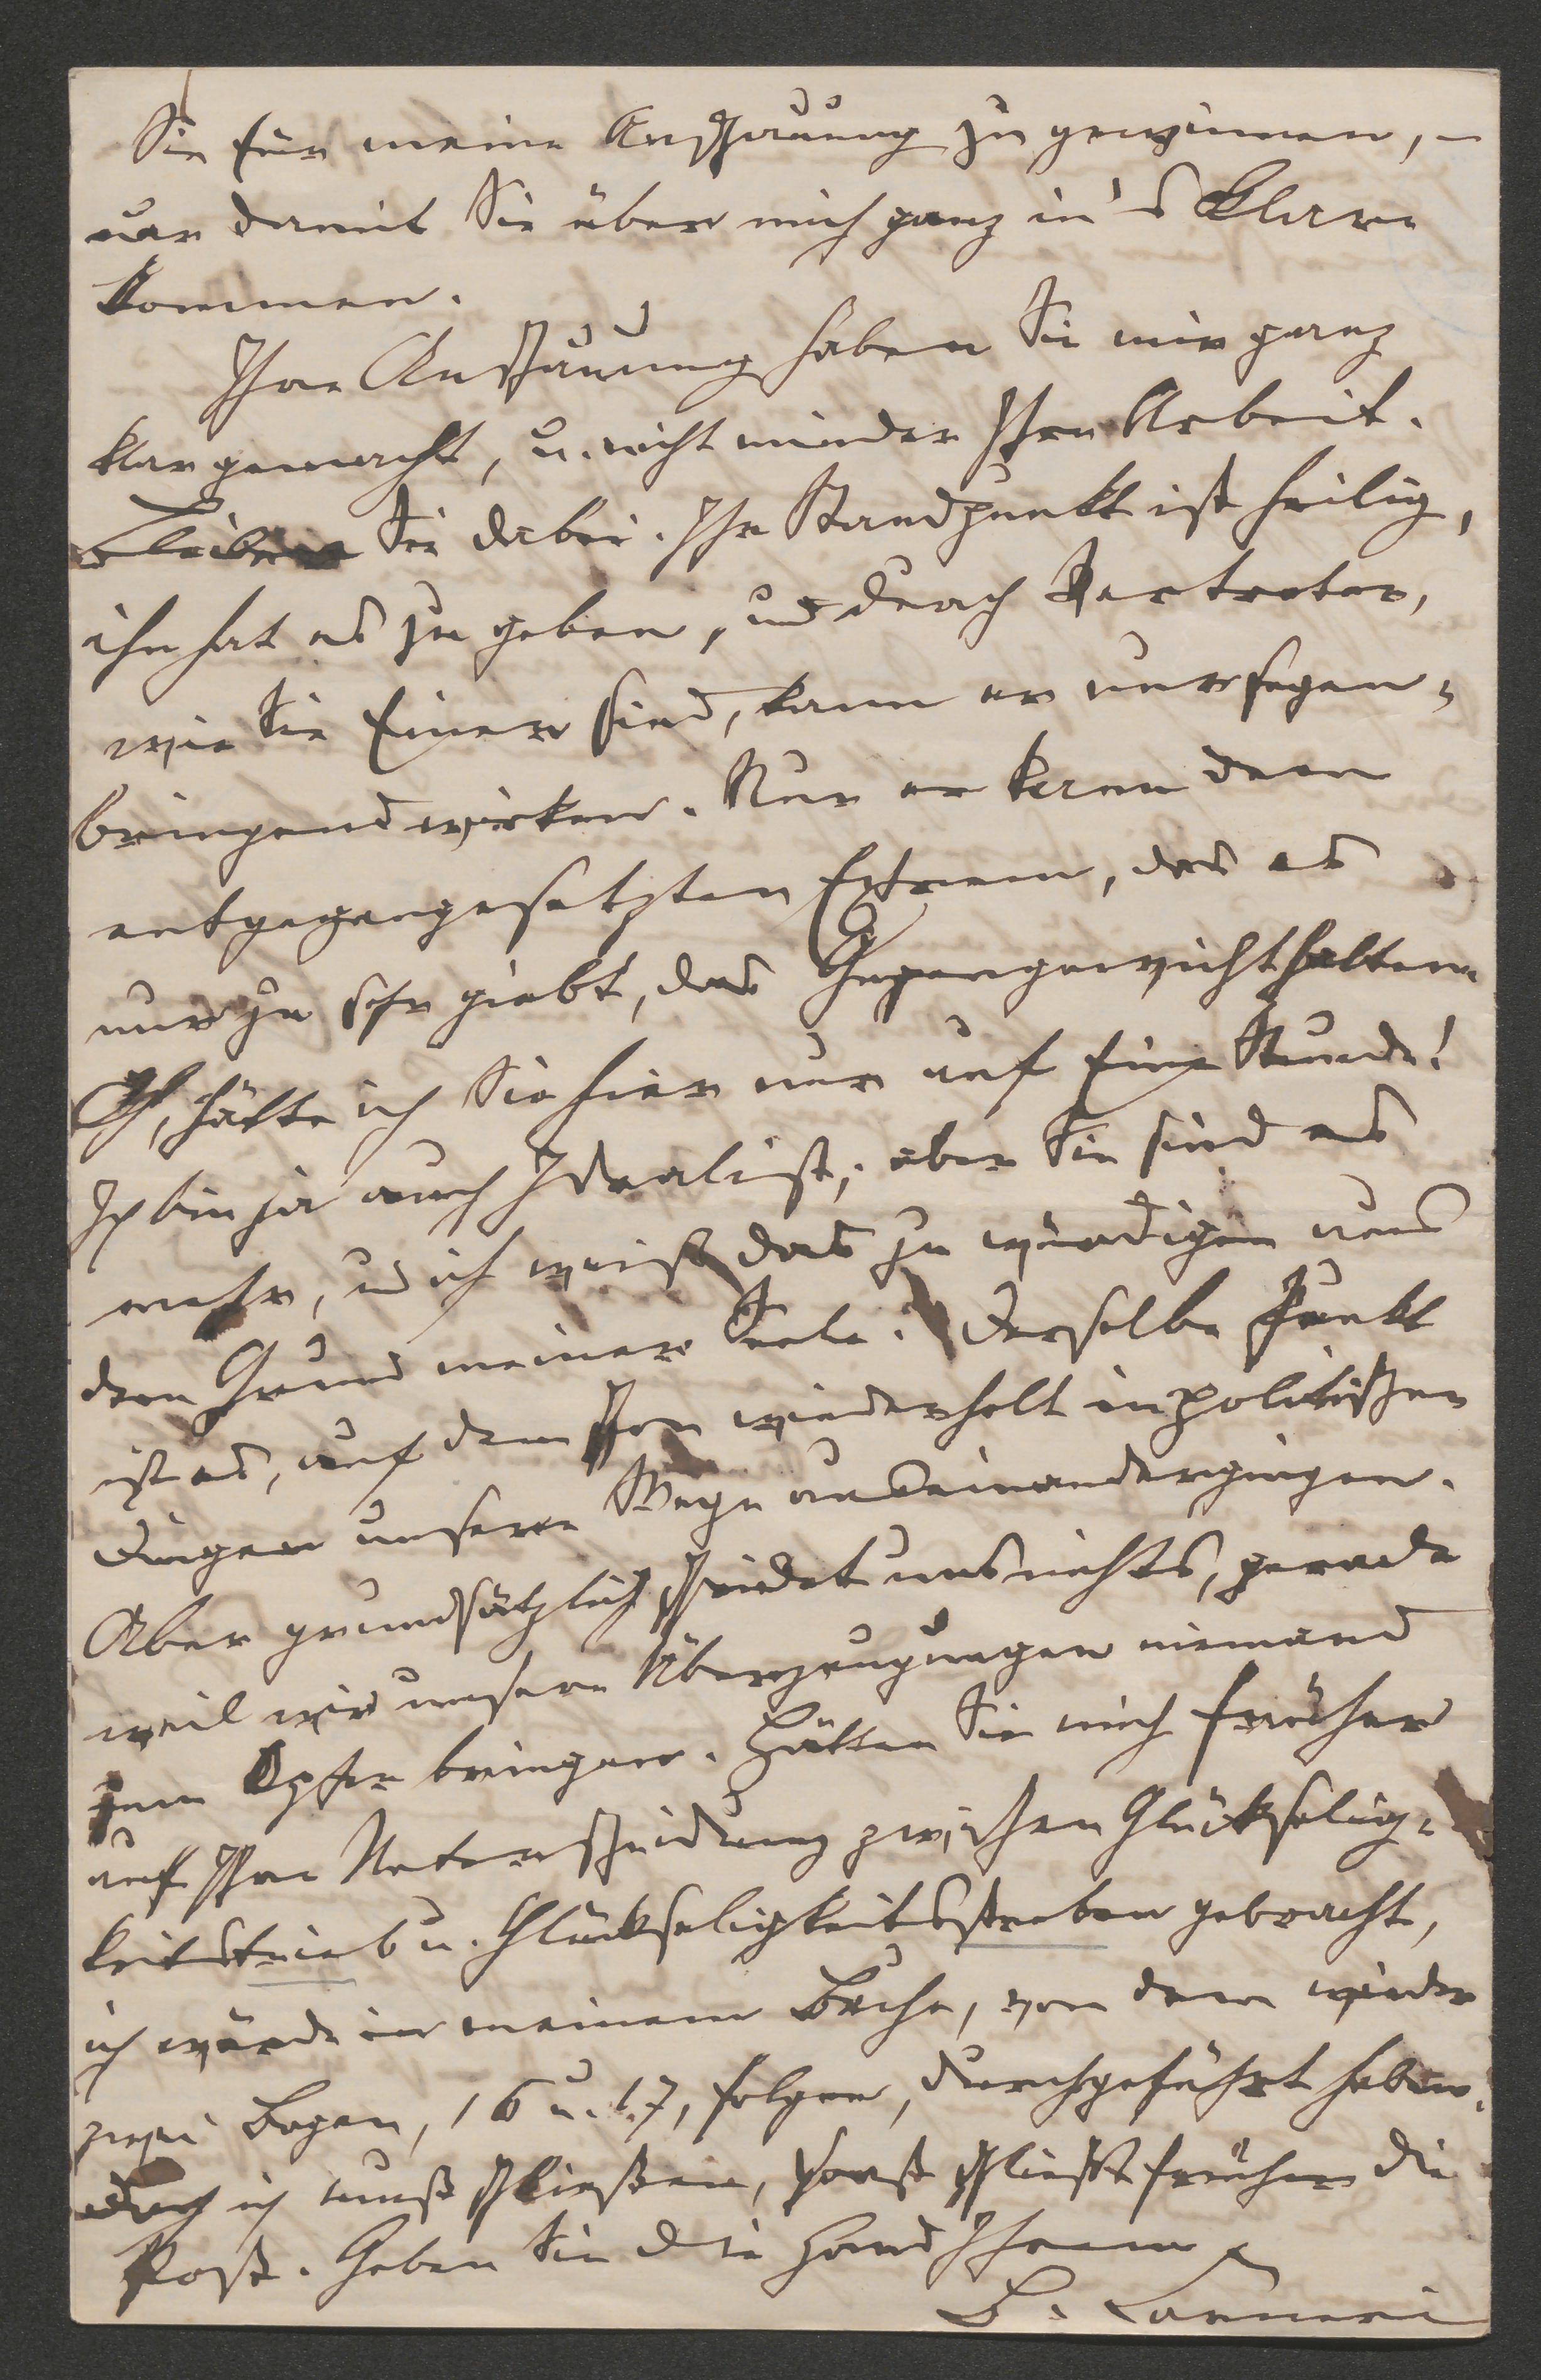 Sie für meine Anschauung zu gewinnen, –
nur damit Sie über mich ganz in's Klare
kommen.
Ihre Anschauung haben Sie mir ganz
klar gemacht, u. nicht minder Ihre Arbeit.
Bleiben Sie dabei. Ihr Standpunkt ist heilig,
ihn hat es zu geben, und durch Vertreter,
wie Sie Einer sind, kann er nur segen-
bringend wirken. Nur er kann dem
entgegengesetzten Extrem, das es
nur zu sehr giebt, das Gegengewicht halten.
O, hätte ich Sie hier nur auf Eine Stunde!
Ich bin ja auch Idealist; aber Sie sind es
mehr, und ich weiß das zu würdigen aus
dem Grund meiner Seele. Derselbe Punkt
ist es, auf dem schon wiederholt in politischen
Dingen unsere Wege auseinandergingen.
Aber grundsätzlich scheidet uns nichts, gerade
weil wir unsere Überzeugungen niemand
zum Opfer bringen. Hätten Sie mich früher
auf Ihre Unterscheidung zwischen Glückselig-
keitstrieb u. Glückseligkeitsstreben gebracht,
ich würde in meinem Buche, von dem wieder
zwei Bogen, 16 u. 17, folgen, durchgeführt haben.
Doch ich muß schließen, sonst schließt früher die
Post. Geben Sie die Hand Ihrem
B. Carneri